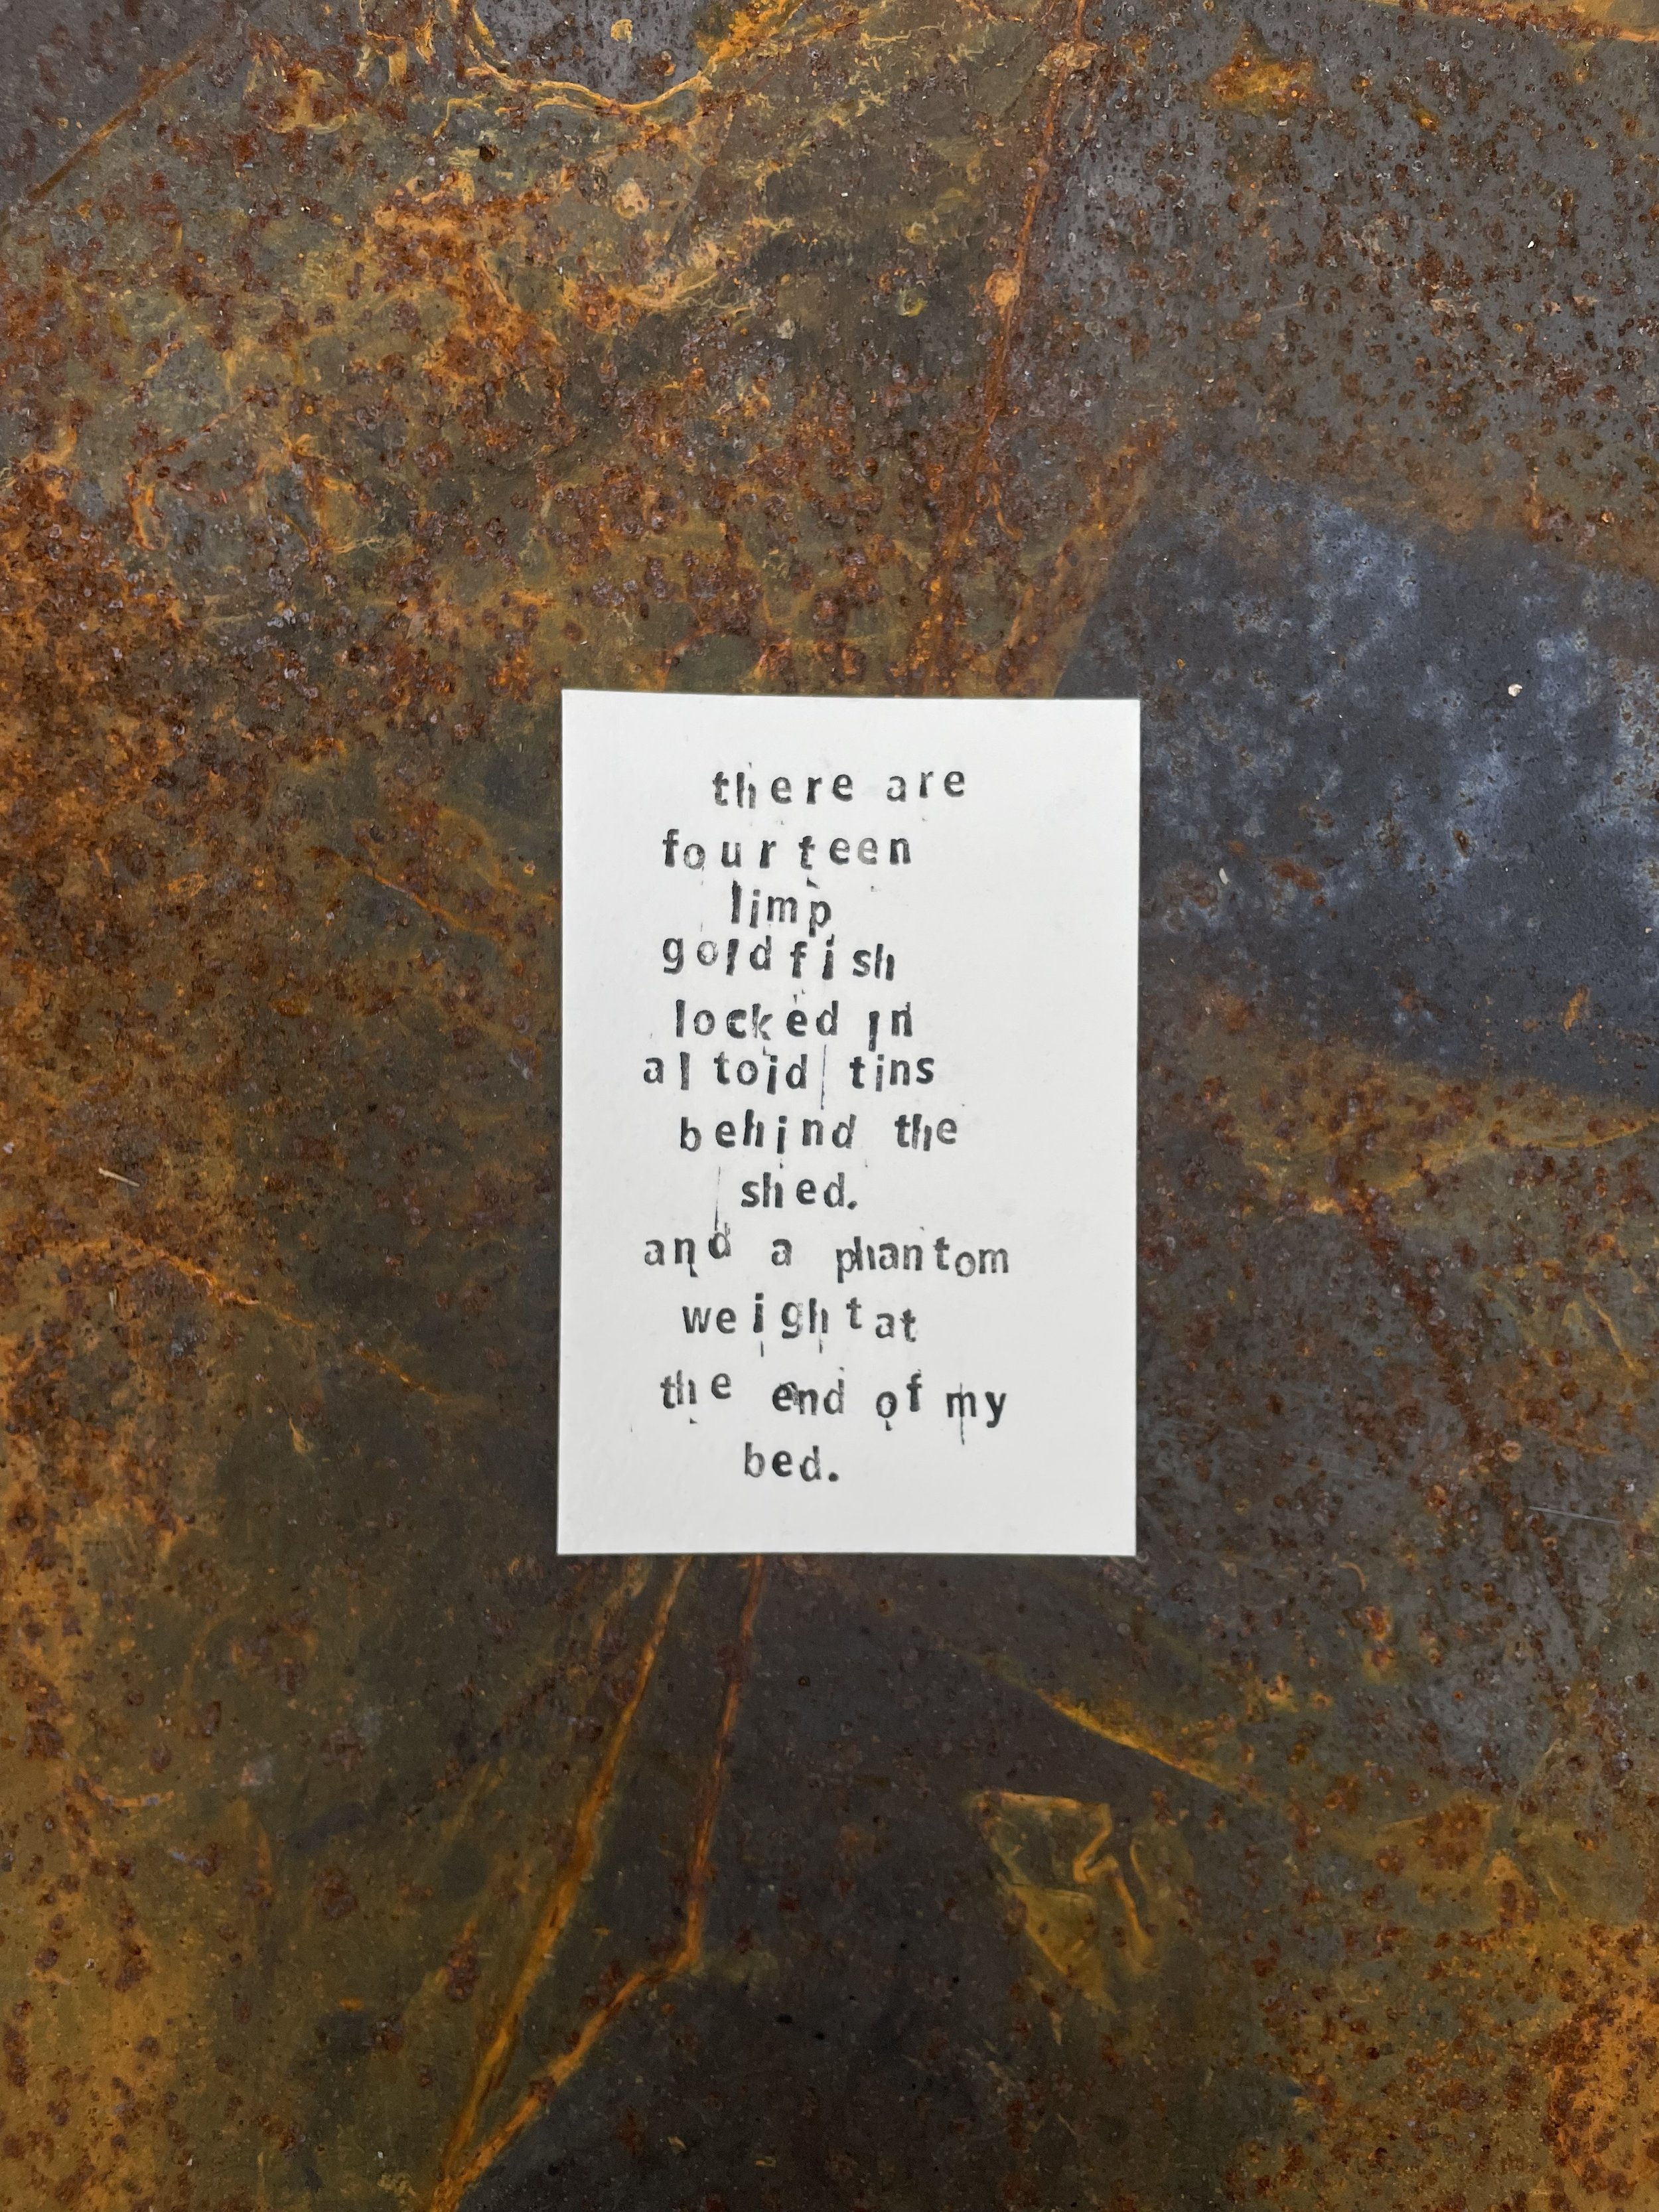 there are
fourteen
limp
goldfish
locked in
altoid tins
behind the
shed.
and a phantom
weight at
the end of my
bed.